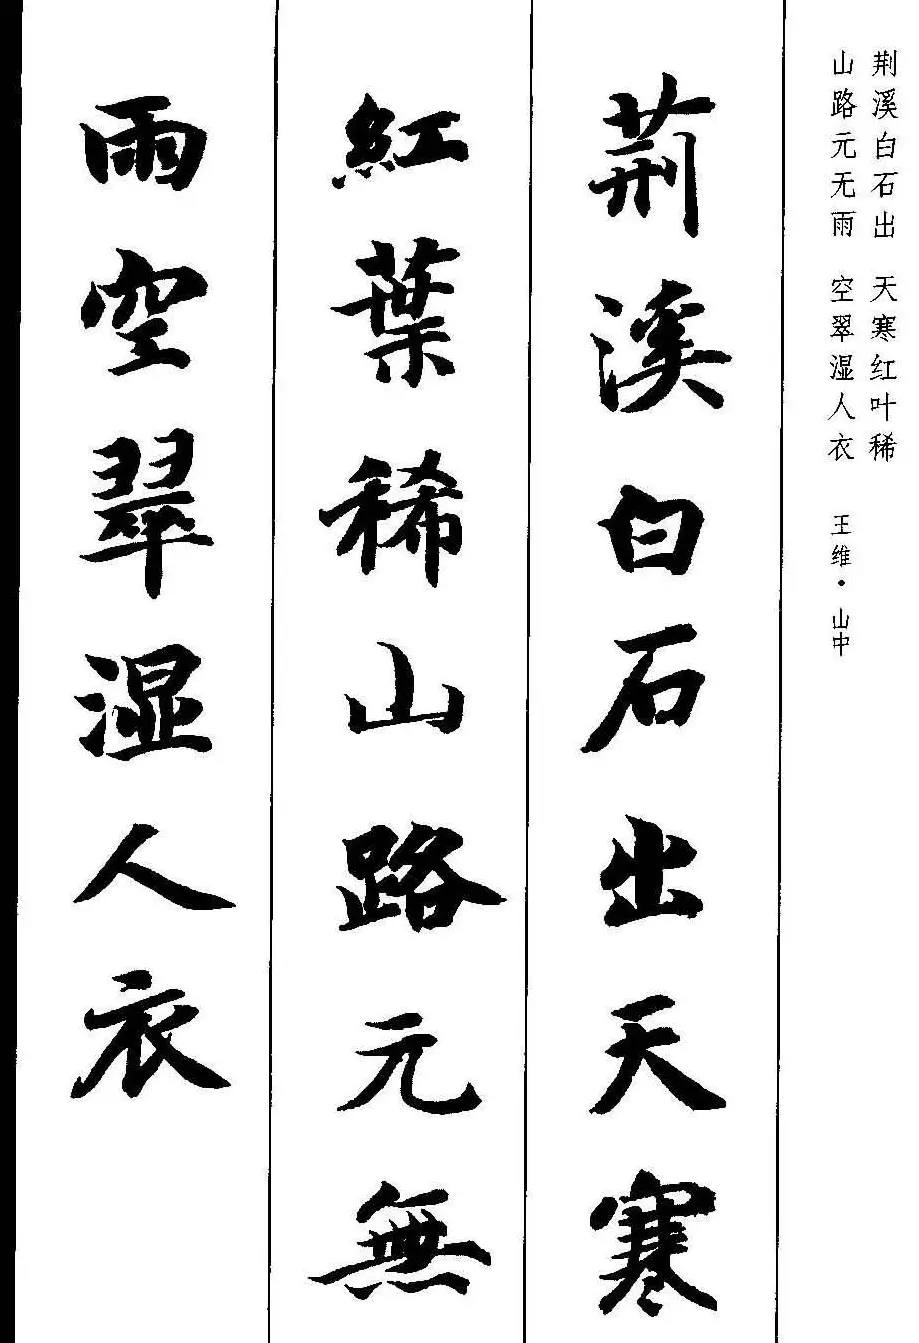 荆溪白石出 天寒红叶稀
山路元无雨 空翠湿人衣 王维·山中
荊溪白石出天寒
紅葉稀山路元無
雨空翠湿人衣